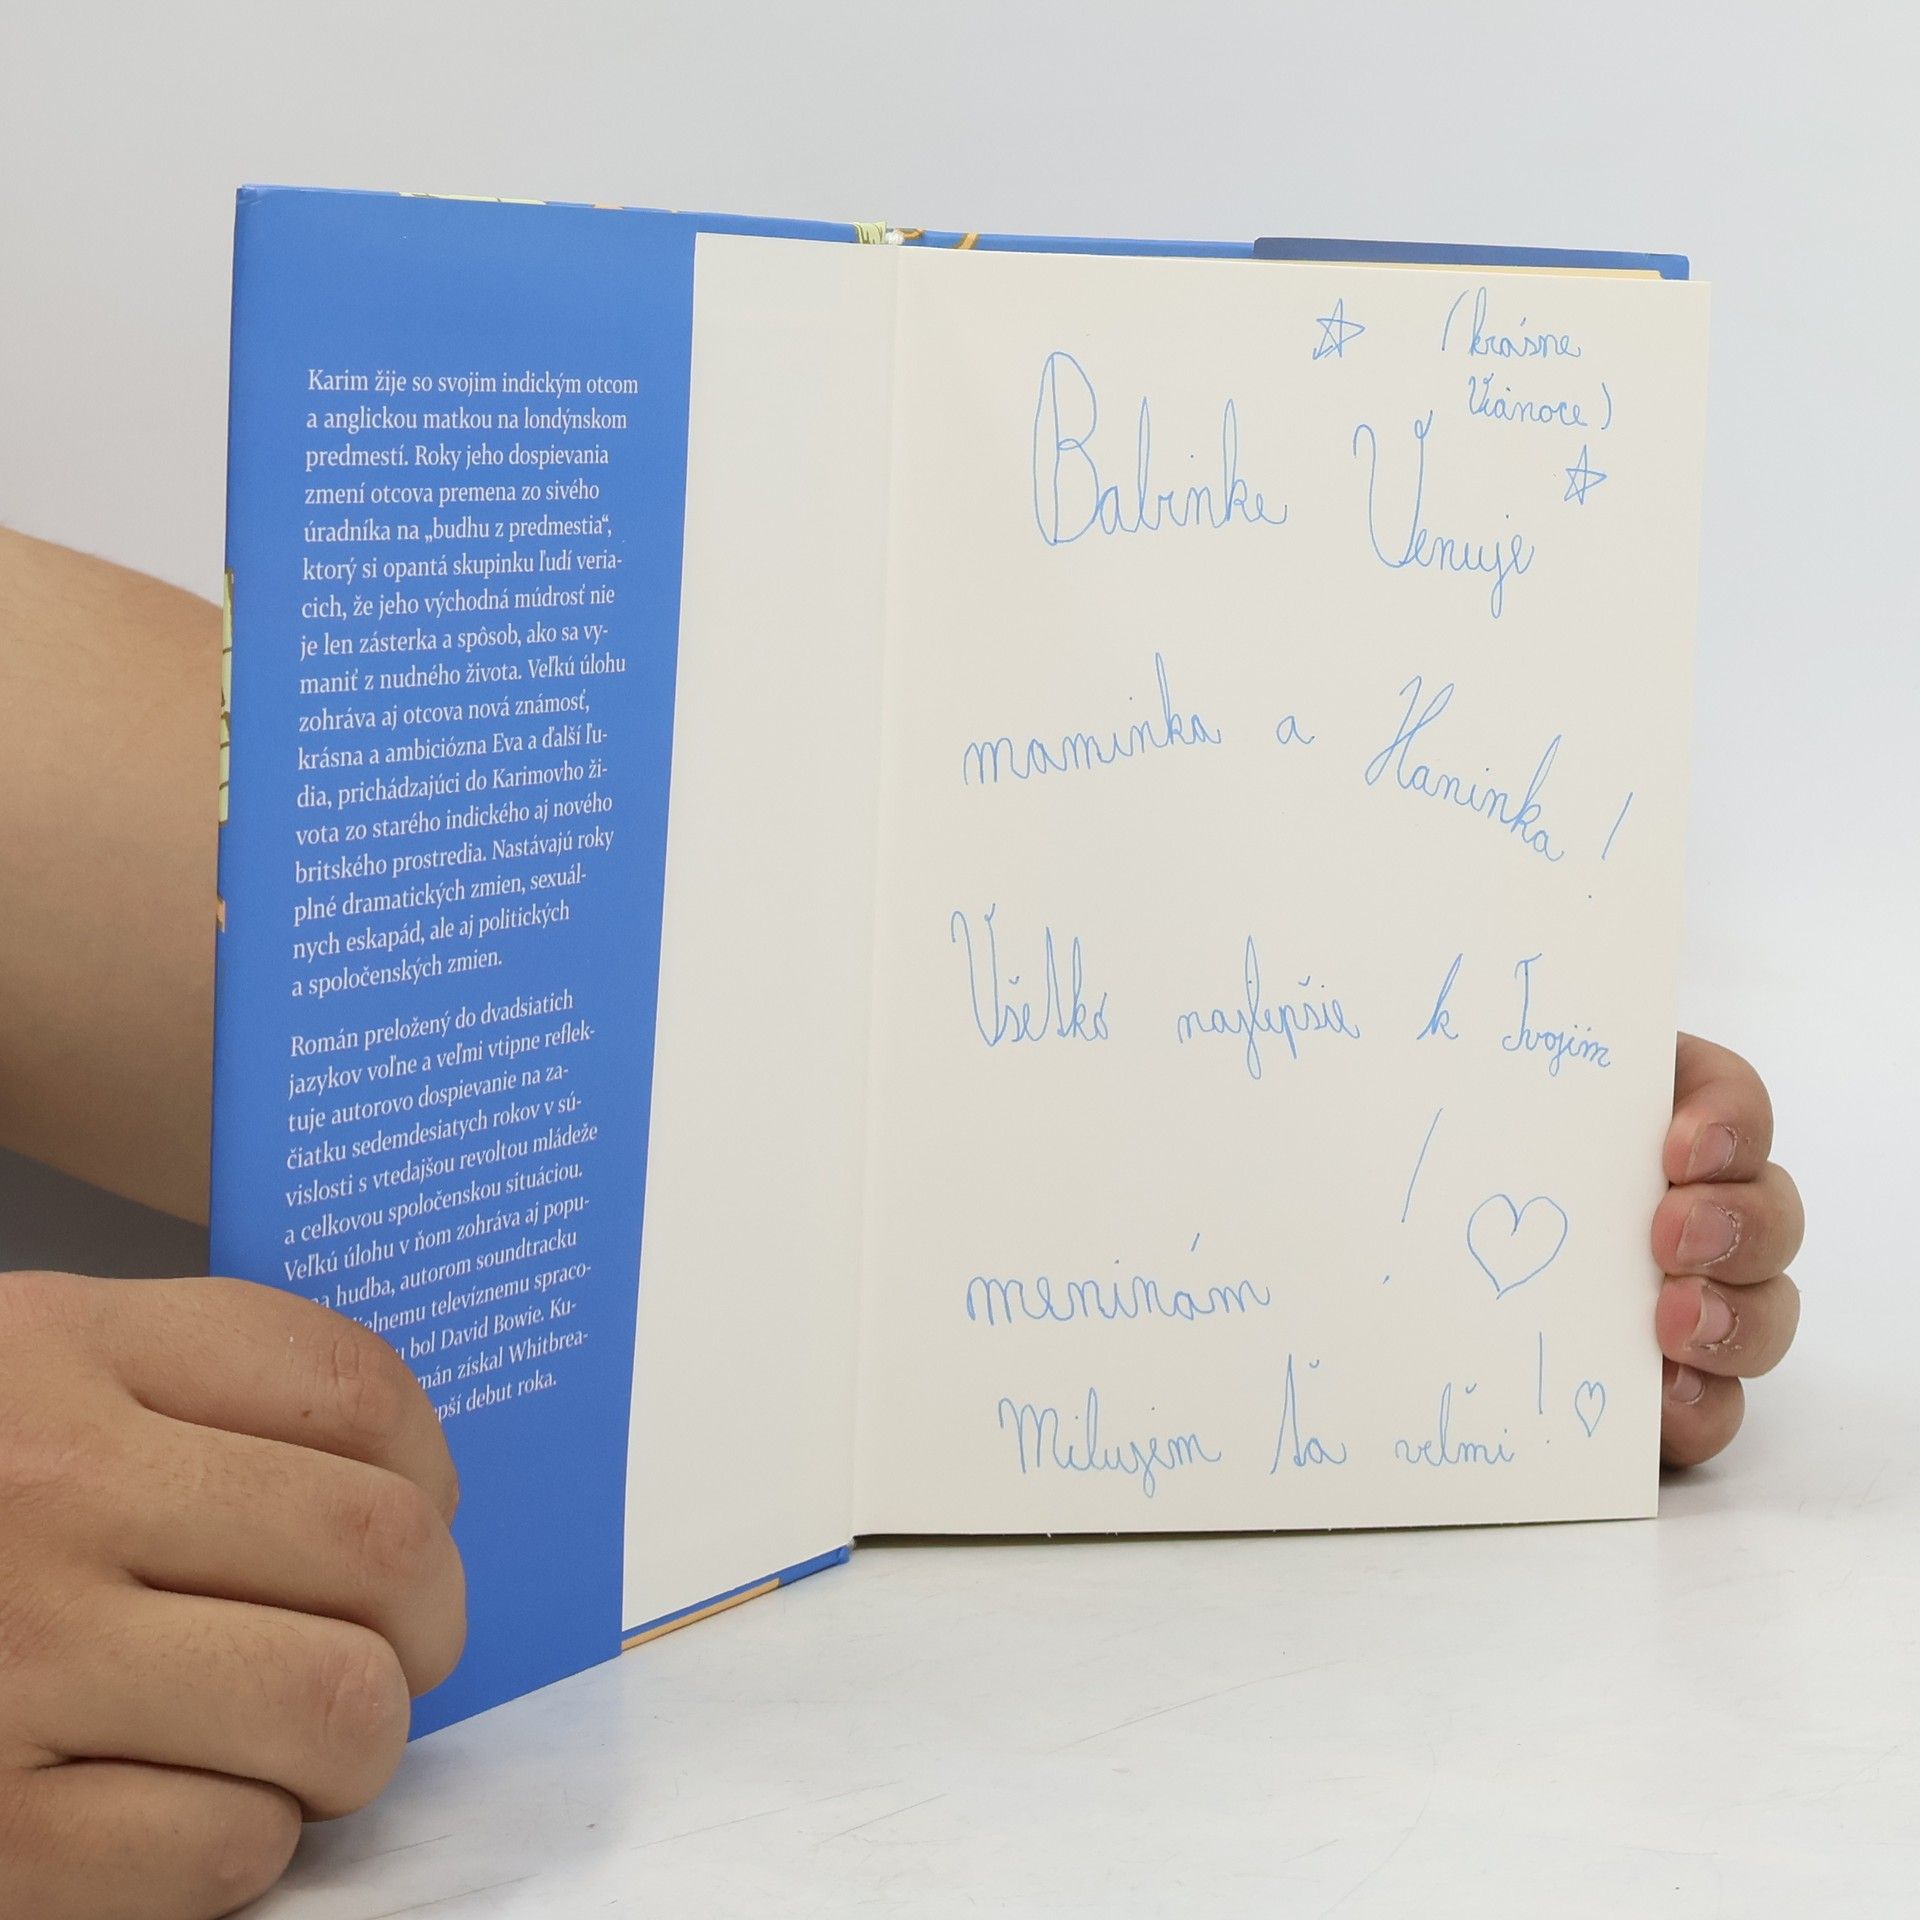 Karim žije so svojim indickým otcom
a anglickou matkou na londýnskom
predmestí. Roky jeho dospievania
zmení otcova premena zo sivého
úradníka na „budhu z predmestia“,
ktorý si opantá skupinku ľudí veria-
cich, že jeho východná múdrosť nie
je len zásterka a spôsob, ako sa vy-
maniť z nudného života. Veľkú úlohu
zohráva aj otcova nová známosť,
krásna a ambiciózna Eva a ďalší ľu-
dia, prichádzajúci do Karimovho ži-
vota zo starého indického aj nového
britského prostredia. Nastávajú roky
plné dramatických zmien, sexuál-
nych eskapád, ale aj politických
a spoločenských zmien.
Román preložený do dvadsiatich
jazykov voľne a veľmi vtipne reflek-
tuje autorovo dospievanie na za-
čiatku sedemdesiatych rokov v sú-
vislosti s vtedajšou revoltou mládeže
a celkovou spoločenskou situáciou.
Veľkú úlohu v ňom zohráva aj popu-
hudba, autorom soundtracku
televíznemu spraco-
bol David Bowie. Ku-
získal Whitbrea-
debut roka.
(krásne
Vianoce)
Babinke Venuje
maminka a Haninka!
Všetko najlepšie k Tvojim
meninám!
Milujem ťa veľmi!